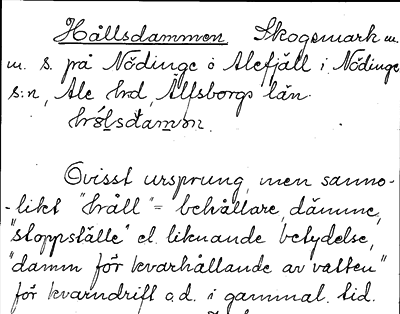 Hållsdammen Skogsmark m.
m. s. på Nödinge ö Alefjäll i Nödinge
s:n, Ale hrd, Älfsborgs län.
hɔ́lsdamɔn.
Ovisst ursprung, men sanno-
-likt "håll" = behållare, dämme,
"stoppställe" el. liknande betydelse,
"damm för kvarhållande av vatten"
för kvarndrift o.d. i gammal tid.